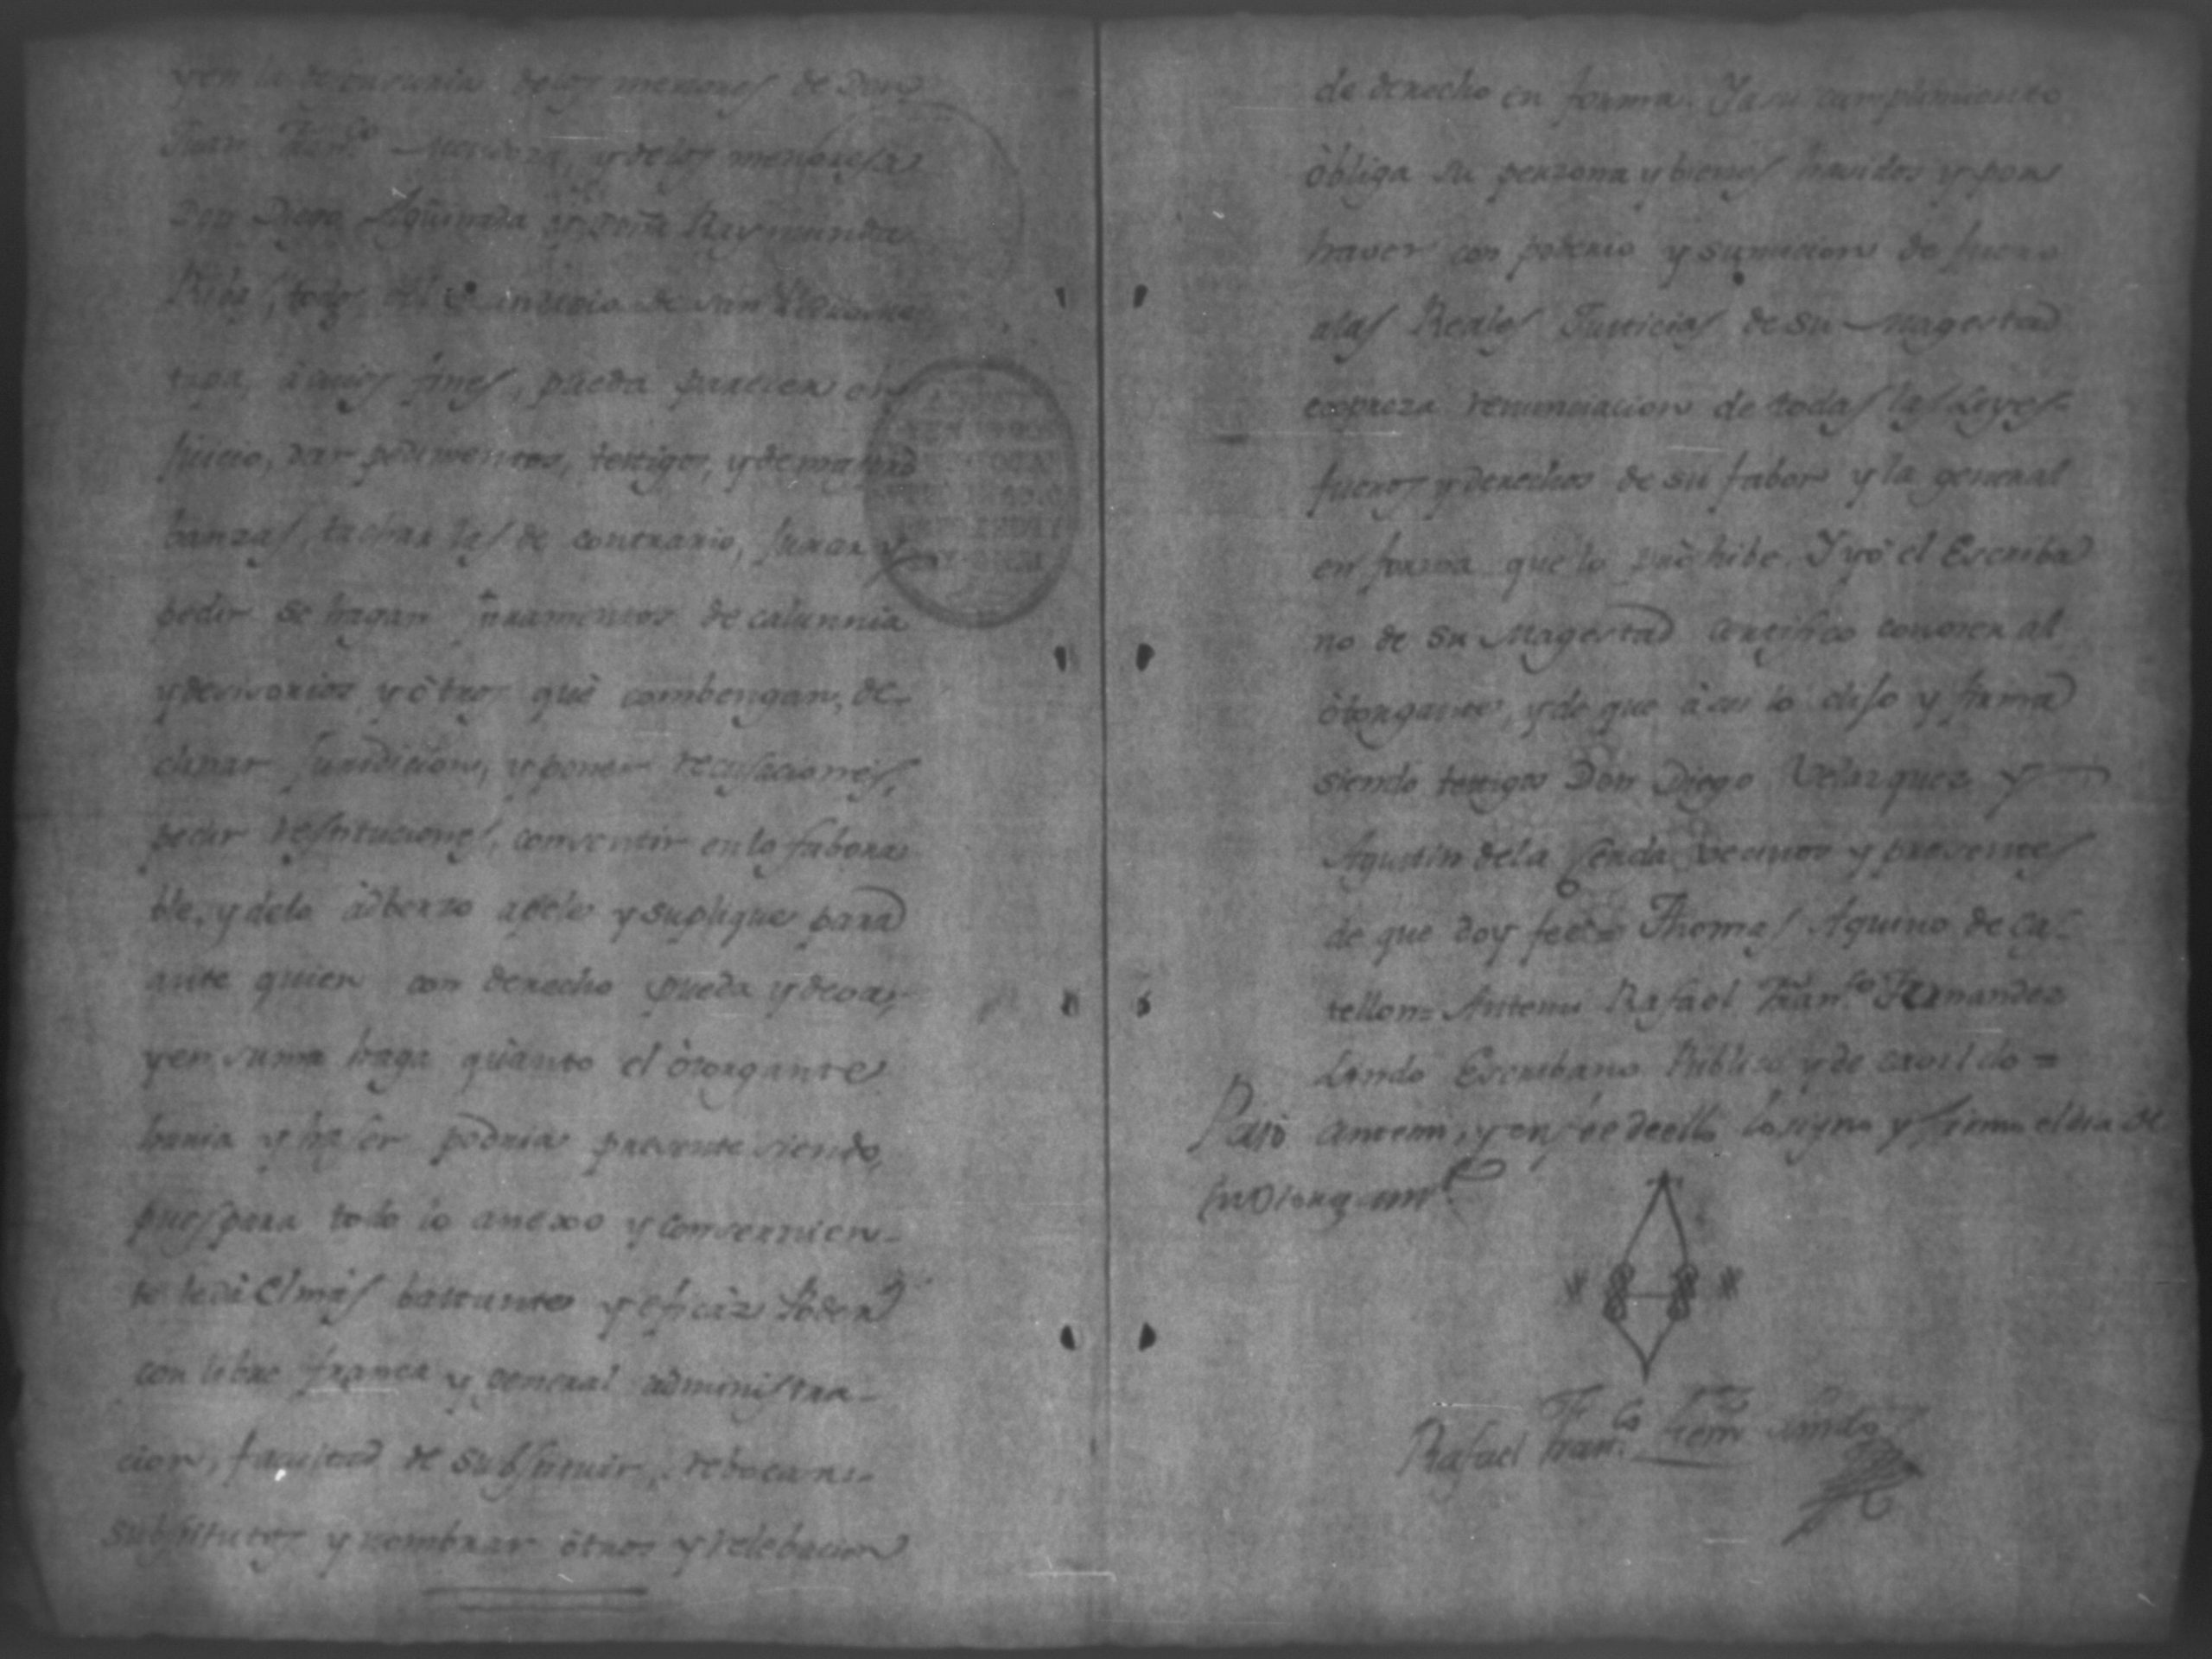 y en la de los menores de Don
Juan Fran.co y de los menores de
Don Diego y Doña Raymunda
todos del
, à cuios fines, pueda parecer en
Juicio, dar pedimentos, testigos, y demas pro
banzas, tachar las de contrario, Jurar y
pedir se hagan Juramentos de calunnia
y desisorios y òtros què combengan, de
clinar Juridicion, y poner recusaciones,
pedir restituciones, consentir en lo fabora
ble, y de lo àdberzo apele y suplique para
ante quien con derecho pueda y deva,
y en suma haga quanto el òtorgante
haria y haser podria presente siendo,
pues para todo lo anexo y concernien-
te le dà el mas bastante y eficàz Poder
con libre franca y general administra-
cion, facultad de substituir, rebocar
substitutos y nombrar òtros y relebacion
de derecho en forma. Y a su cumplimiento
òbliga su perzona y bienes havidos y por
haver con poderio y sumicion de fuero
a las Reales Justicias de su Magestad
expreza renunciacion de todas las Leyes
fueros y derechos de su fabor y la general
en forma que lo prohibe. Y yo el Escriba
no de su Magestad certifico conocer al
òtorgante, y de que àsi lo diso y firma
siendo testigos Don Diego Velazquez y
Agustin de la Cerda vecinos y presentes
de que doy feè = Thomas Aquino de Cas
tellon = Antemi Rafael Fran.co Fernandez
Lindo Escribano Publico y de cavildo =
Pasò antemi, y en fee de ello lo signo y firmo el dia de
su Otorgam.to
Rafael Fran.co Fern.dez Lindo